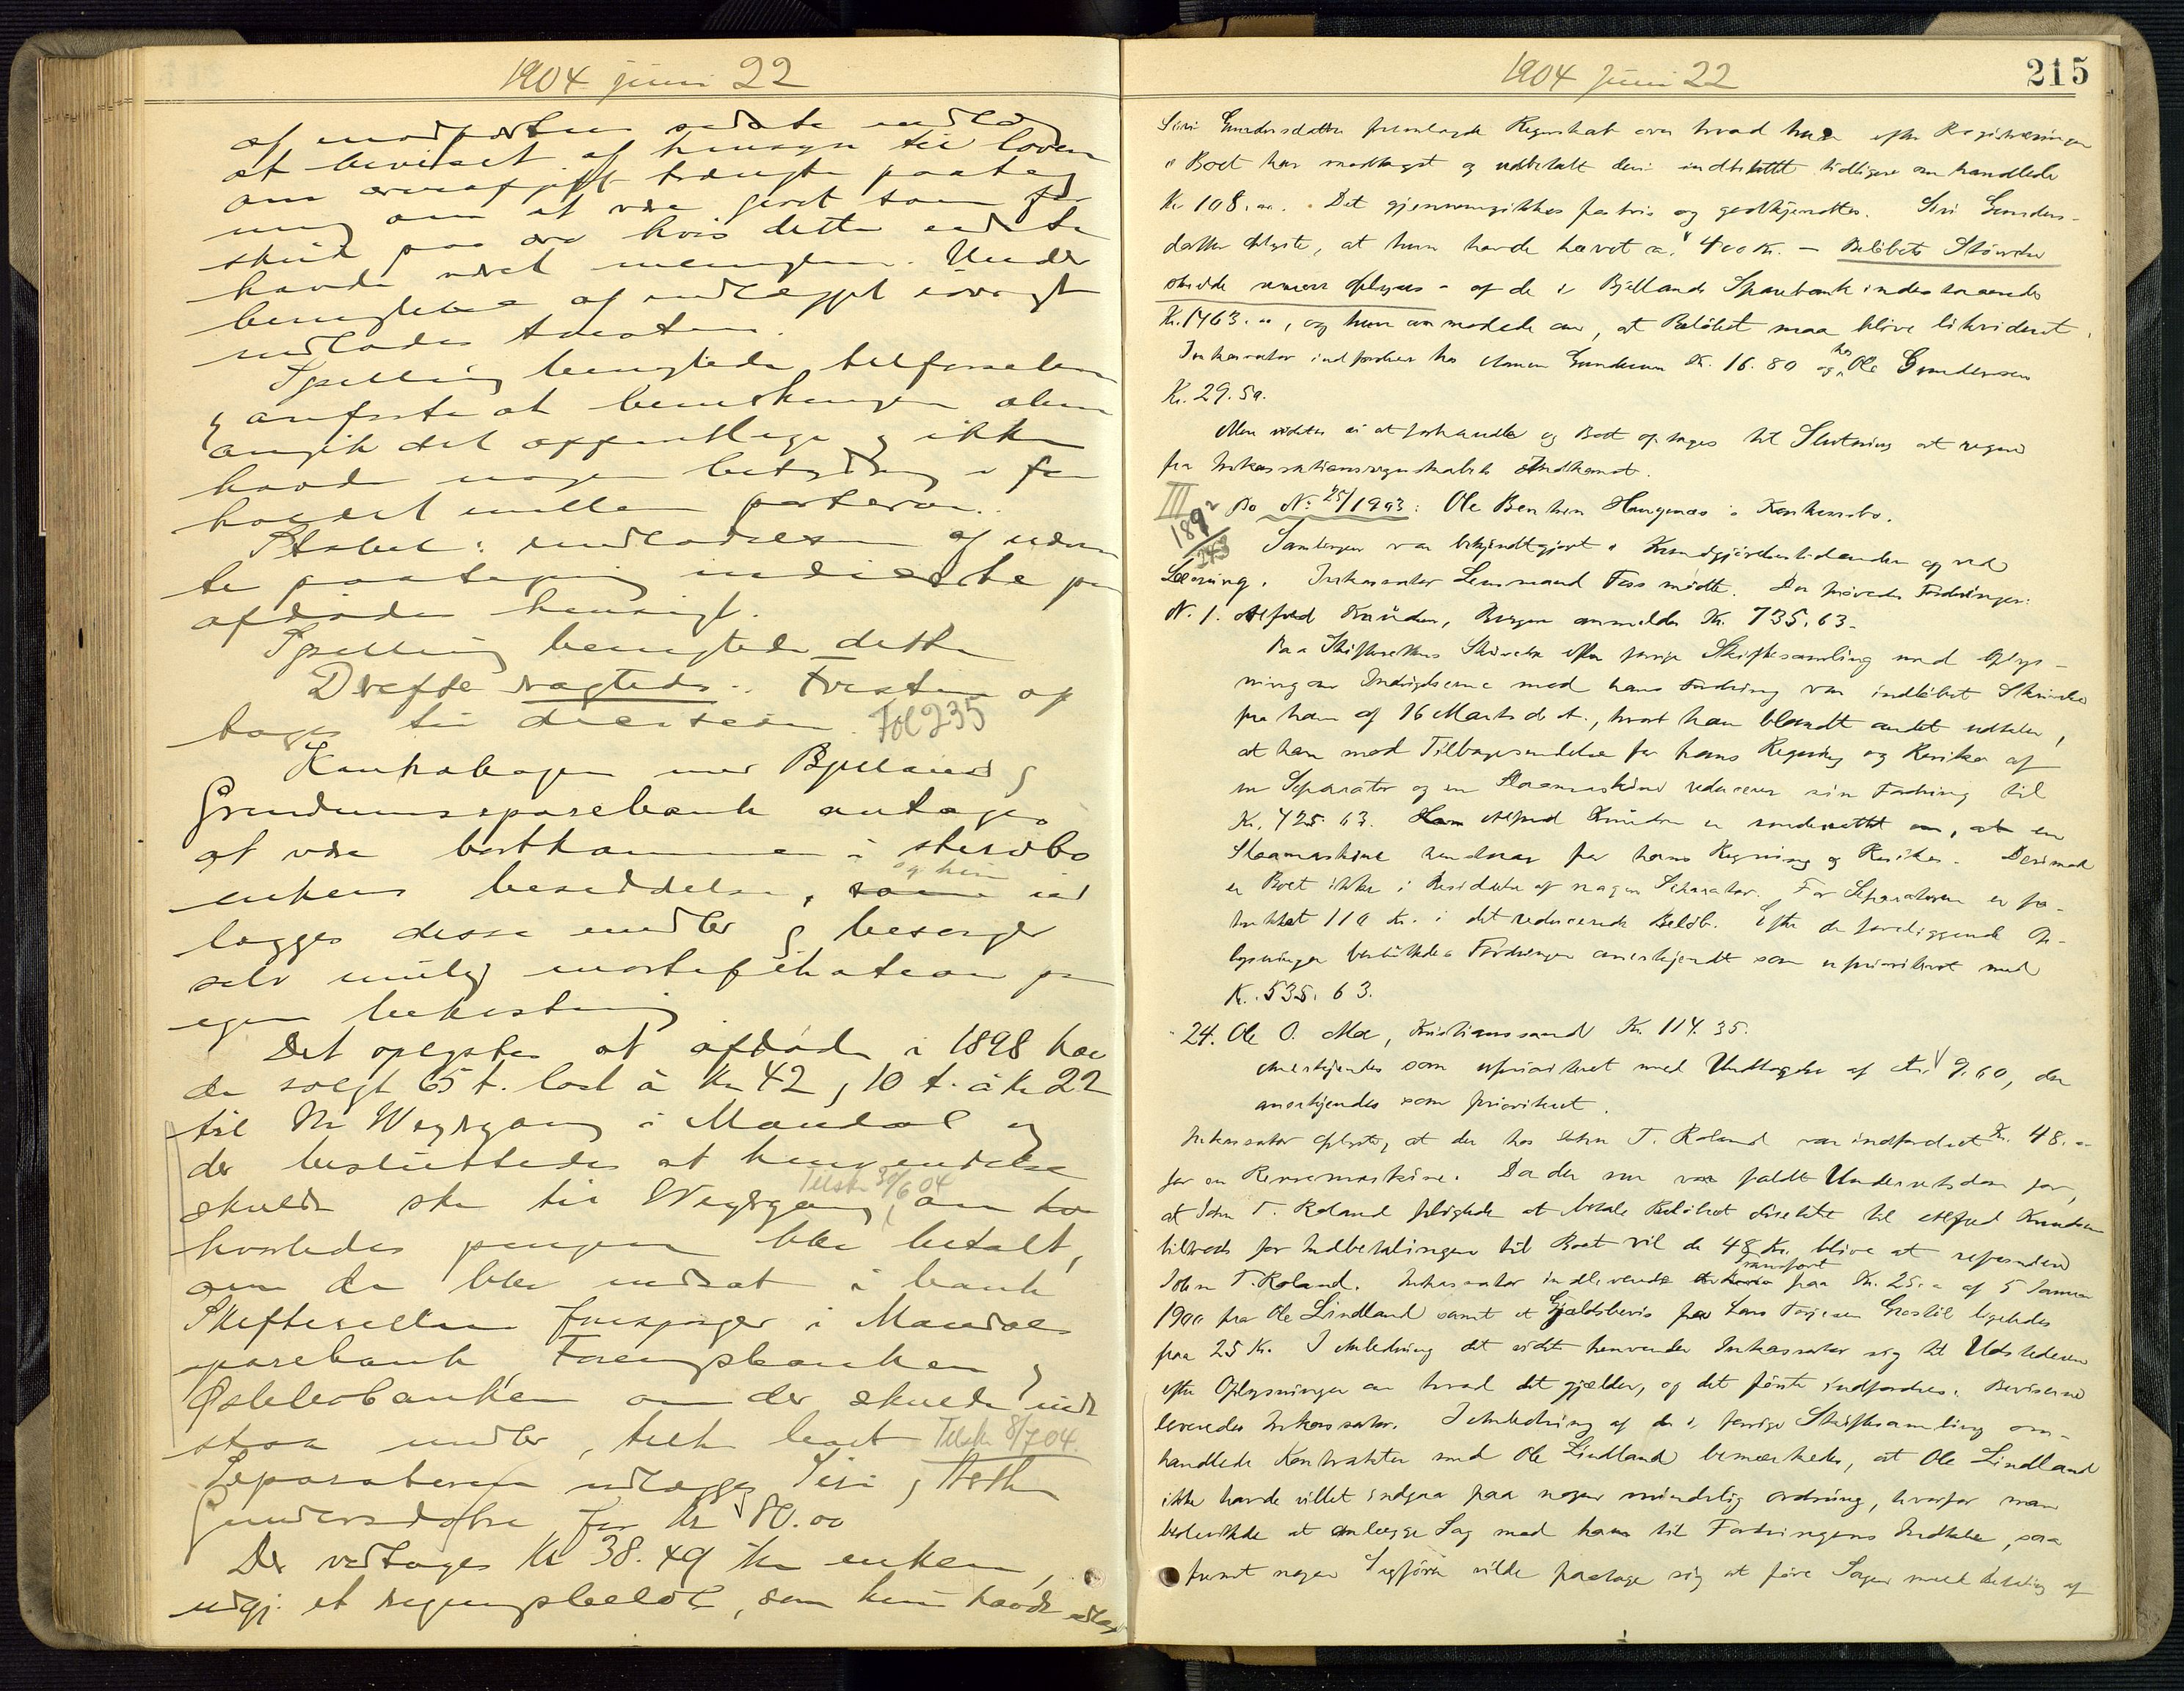 1904 juni 22
af modparten sidste indlæg
at beviset af hensyn til loven
om arveafgift trængte paateg
ning om at være givet som for
skud paa arv hvis dette endda
havde været meningen. Under
benegtelse af indlægget iøvrigt
indlodes tvisten.
Spilling benegtede tilførselen
& anførte at bemerkningen alene
angik det offentlige & ikke
havde nogen betydning i for
holdet mellem parterne.
Stabel: undladelsen af nævn
te paategning indicerte paa
afdødes hensigt.
Spilling benegtede dette
Drøfte vægtede. Tvisten op
toges til decision. Fol 235
Kontrabogen med Bjelland &
Grindums sparebank antages
at være bortkommen i stervbo
enkens besiddelse, og hun ud
lægges disse midler & besørger
selv mulig mortifikation paa
egen bekostning
Det oplystes at afdøde i 1898 hav
de solgt 65 t. last à Kr 42 & 10 t. à Kr 22
til Hr Weyrgang i Mandal og
der besluttedes at henvendelse
Tilskr 30/6 04
skulde ske til Weyrgang, om
hvorledes pengene blev betalt,
om de blev indsat i bank
Skifteretten forespørger i Mandals
sparebank Foreningsbanken &
Oplebobanken om der skulde ind
staa midler, tilh. boet Tilskr 8/7 04.
Separatoren udlægges Siri & Aseth
Gundersdøtre for Kr 80.00
Der vedtages Kr 38.49 fra enken,
udgj. et regningsbeløb, som hun havde udlagt
1904 Juni 22
215
Siri Gundersdatter fremlagde Regnskab over hvad hun efter Registreringen
i Boet har modtaget og udbetalt deri indbefattet tidligere omhandlede
Kr 108.00. Det gjennemgikkes postvis og godkjendtes. Siri Gunders-
datter oplyste, at hun havde hævet ca. 400 Kr. – Beløbets Størrelse
skulde nærmere oplyses – af de i Bjellands Sparebank indestaaende
Kr. 1463.00, og hun anmodede om, at Beløbet maa blive likvideret.
Inkassator indfordrer hos Aanen Gundersen Kr. 16.80 og hos Ole Gundersen
Kr. 29.50.
Mere vidstes ei at forhandle og Boet optages til Slutning at regne
fra Inkassationsregnskabets Indkomst.
III Bo No 25/1903: Ole Bentsen Haugenæs's Konkursbo.
1892/243
Samlingen var bekjendtgjort i Kundgjørelsestidenden og ved
Læsning. Inkassator Lensmand Foss mødte. Der prøvedes Fordringer:
N. 1. Alfred Knudsen, Bergen anmeldte Kr. 735.63.
Paa Skifterettens Skrivelse efter forrige Skiftesamling med Oplys-
ning om Indsigelserne mod hans Fordring var indløbet Skrivelse
fra ham af 16 Marts d. A., hvori han blandt andet udtaler,
at han mod Tilbagesendelse for hans Regning og Risiko af
en Separator og en Slaamaskine reducerer sin Fordring til
Kr. 425.63. Alfred Knudsen er underrettet om, at en
Slaamaskine henstaar for hans Regning og Risiko. Derimod
er Boet ikke i Besiddelse af nogen Separator. For Separatoren er fra-
trukket 110 Kr. i det reducerede Beløb. Efter de foreliggende Op-
lysninger besluttedes Fordringen anerkjendt som uprioriteret med
Kr. 535.63.
24. Ole O. Moe, Kristianssand Kr. 114.35.
Anerkjendes som uprioriteret med Undtagelse af Kr. 9.60, der
anerkjendes som prioriteret.
Inkassator oplyste, at der hos John T. Roland var indfordret Kr. 48.00
for en Rensemaskine. Da der nu var faldt Underretsdom for,
at John T. Roland pligtede at betale Beløbet direkte til Alfred Knudsen
tiltrods for Indbetalingen til Boet vil de 48 Kr. blive at refundere
Transport
John T. Roland. Inkassator indleverede paa Kr. 25.00 af 5 Januar
1900 fra Ole Lindland samt et Gjældsbevis fra Lars Torjesen Grostøl ligeledes
paa 25 Kr. I Anledning det sidste henvender Inkassator sig til Udstederen
efter Oplysninger om hvad det gjælder, og det første indfordres. Beviserne
leveredes Inkassator. I Anledning af de i forrige Skiftesamling om-
handlede Kontrakter med Ole Lindland bemærkedes, at Ole Lindland
ikke havde villet indgaa paa nogen mindelig ordning, hvorfor man
besluttede at anlægge Sag mod ham til Fordringens Indtale, saa
fremt nogen Sagfører vilde paatage sig at føre Sagen mod Betaling af